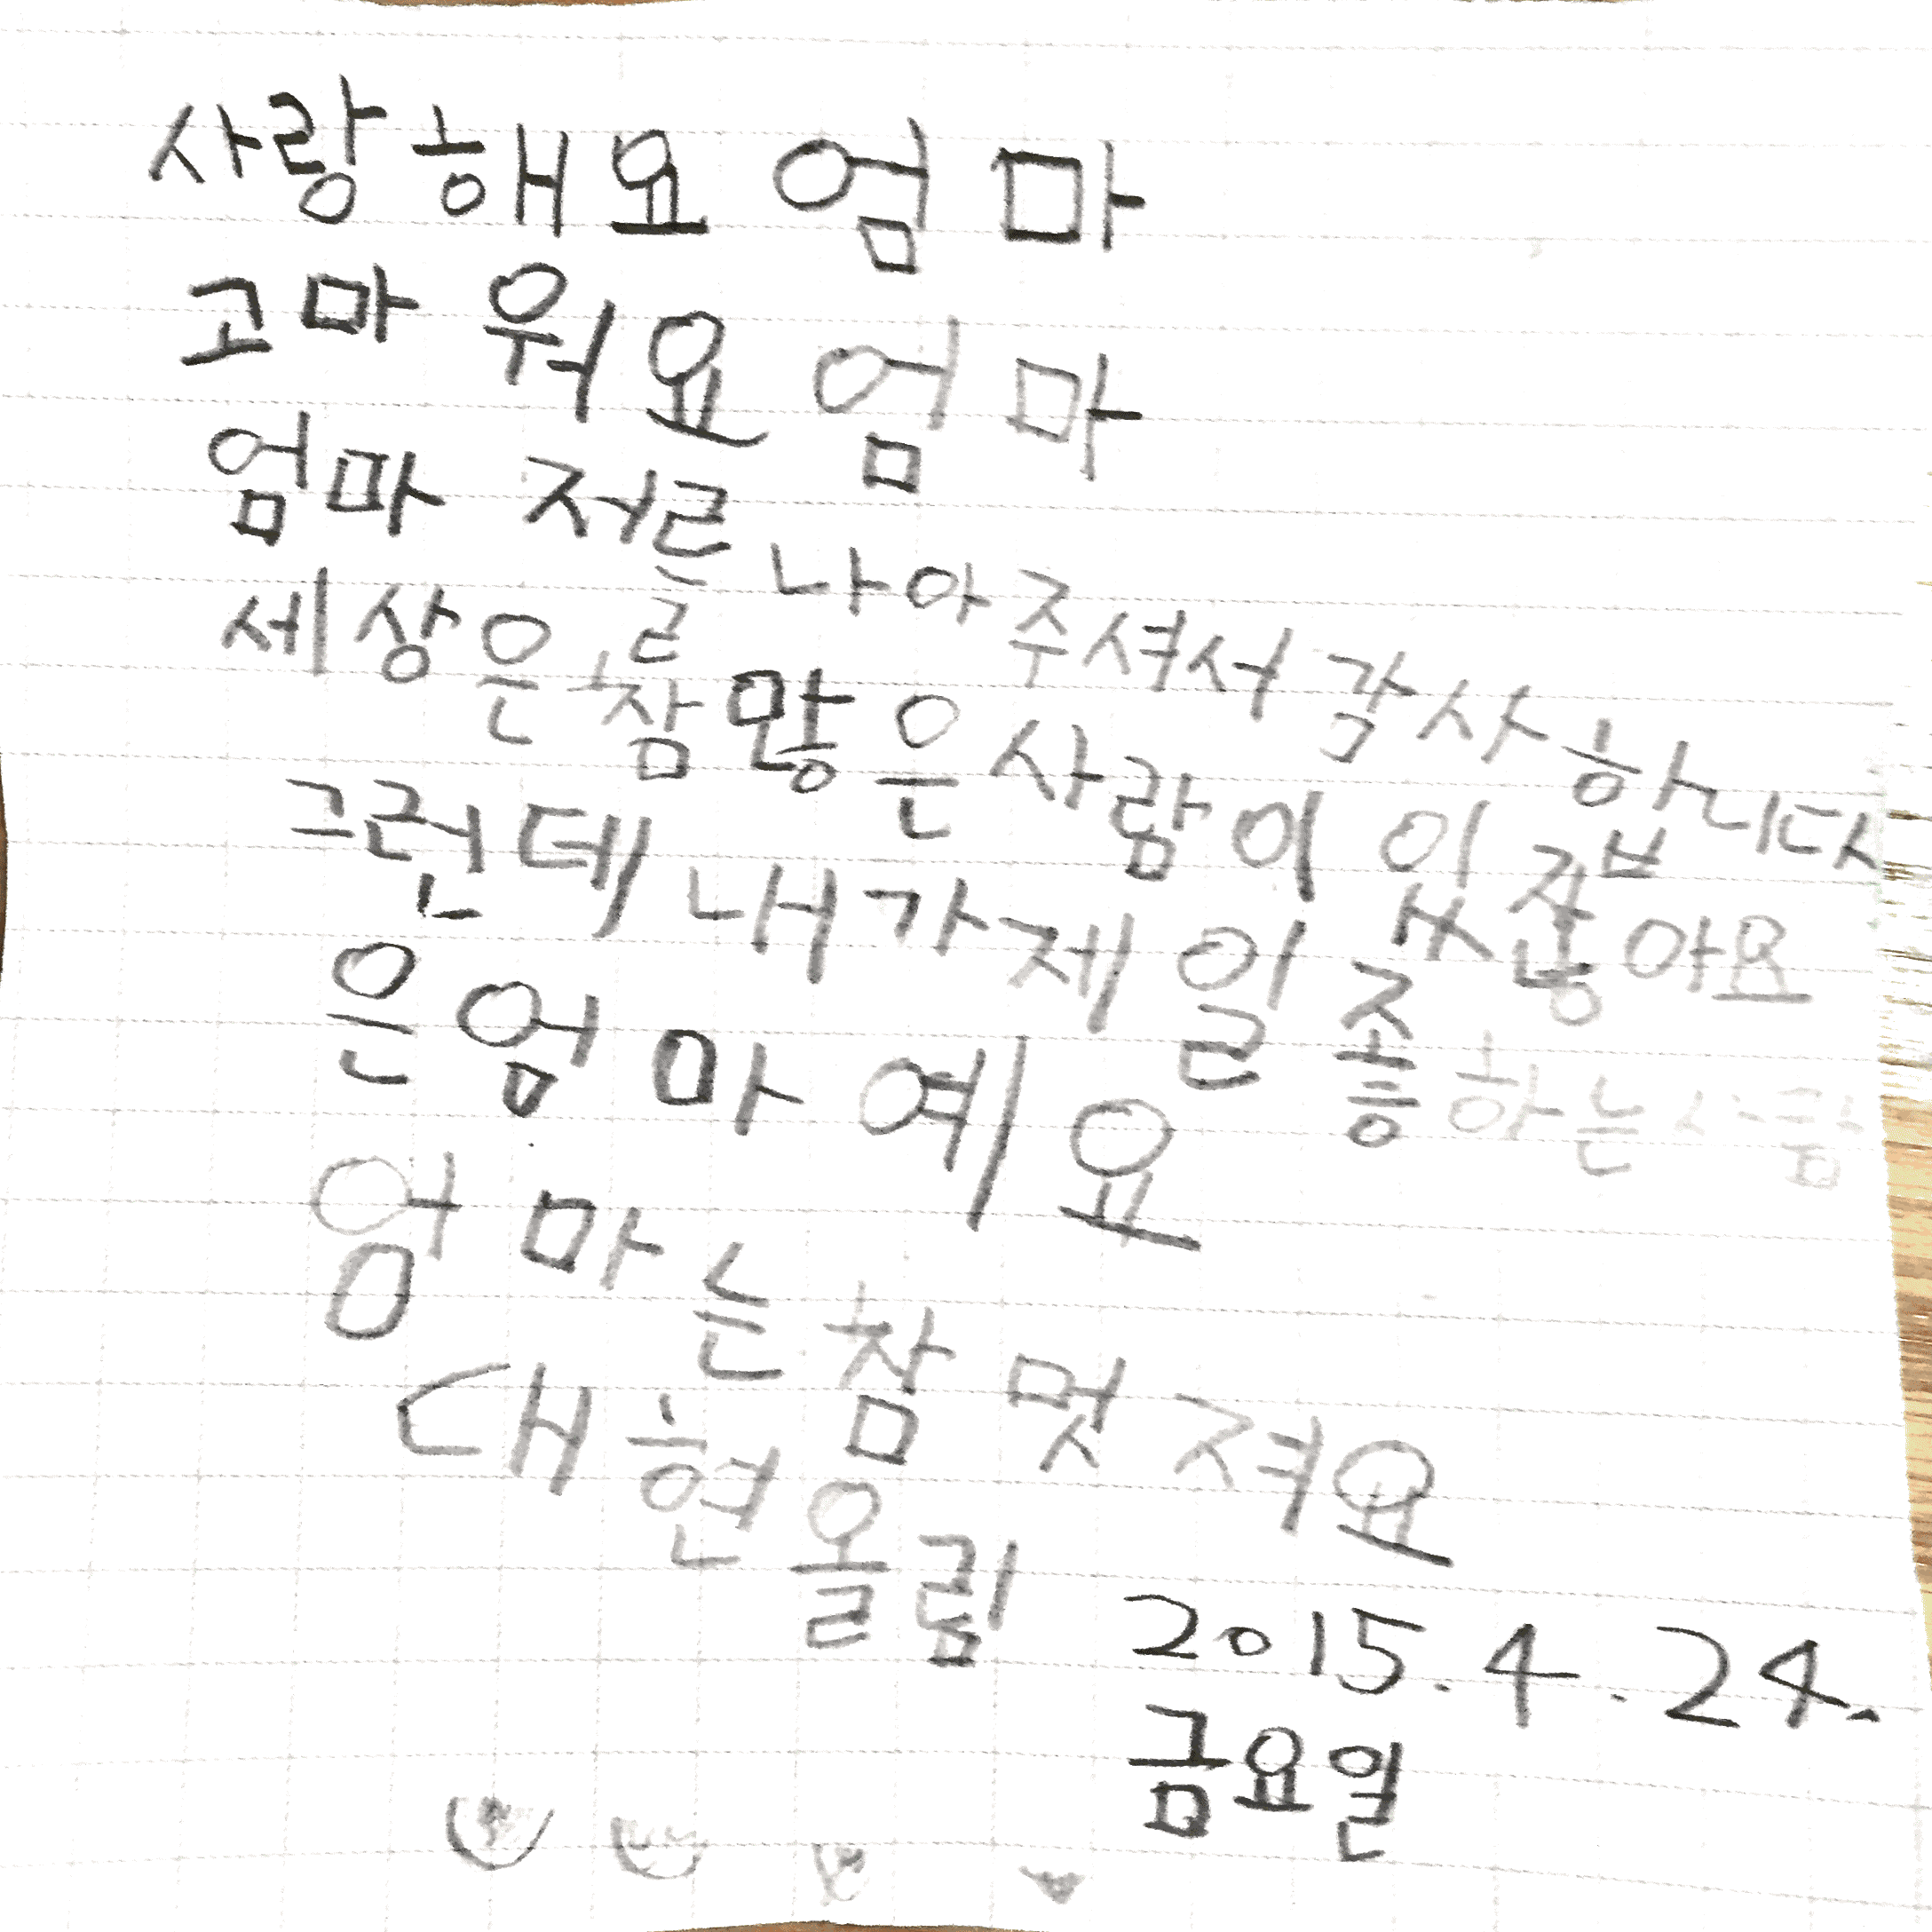 사랑해요 엄마
고마워요 엄마
엄마 저를 나아주셔서 감사합니다
세상은 참 맣은 사람이 있잖아요
그런데 내가 제일 좋하는 사람
은 엄마예요
엄마는 참 멋져요
대현 올림
2015.4.24.
금요일